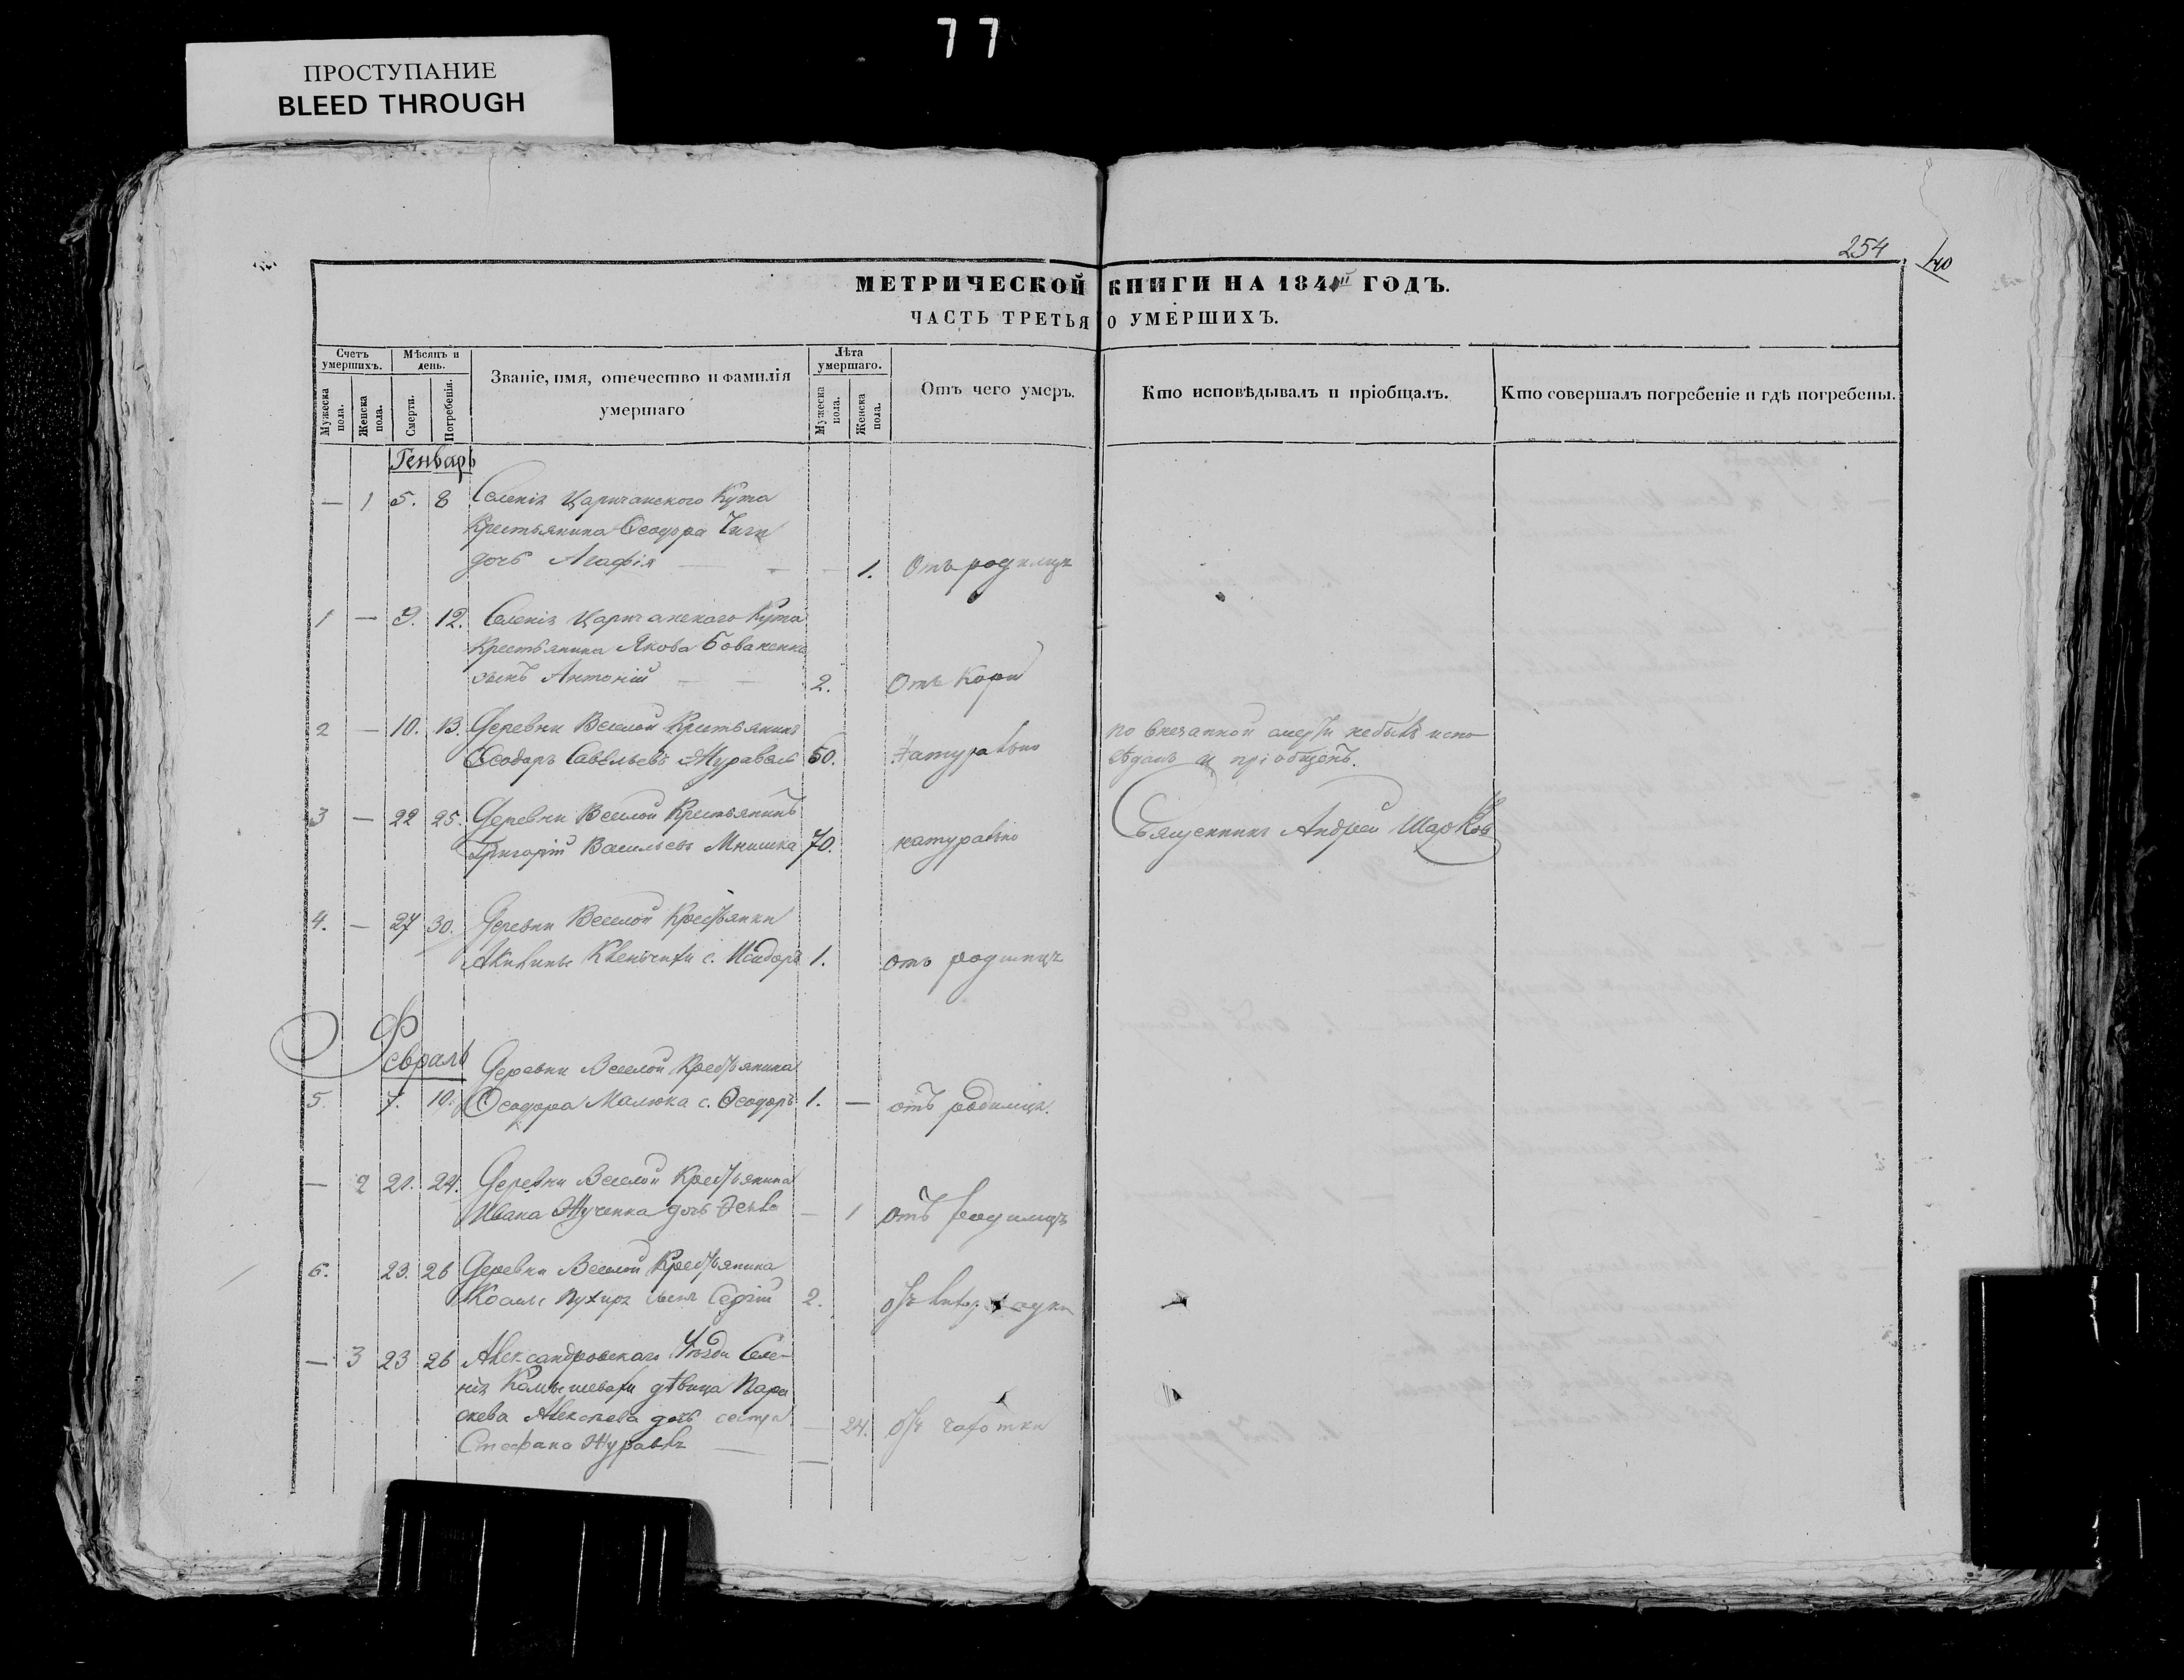 77
ПРОСТУПАНИЕ
BLEED THROUGH
254
40
МЕТРИЧЕСКОЙ КНИГИ НА 184 ГОДЪ.
ЧАСТЬ ТРЕТЬЯ О УМЕРШИХЪ.
Счетъ умершихъ.
Мужеска пола.
Женска пола.
Мѣсяцъ и день.
Смерти.
Погребенія.
Званіе, имя, отечество и фамилія умершаго
Лѣта умершаго.
Мужеска пола.
Женска пола.
Отъ чего умеръ.
Кто исповѣдывалъ и пріобщалъ.
Кто совершалъ погребеніе и гдѣ погребены.
Генварь
— 1 5. 8 Селенія Царичанского Кута
Крестьянина Ѳеодора
дочь Агафія — 1. Отъ родимца
1 — 9. 12. Селенія Царичанского Кута
Крестьянина Якова Бованенка
сынъ Антоній — — 2. Отъ кори
2 — 10. 13. Деревни Веселой Крестьянинъ
Ѳеодоръ Савельевъ 60. Натурально
по внезапной смерти небылъ испо-
вѣданъ и пріобщенъ.
3 — 22 25. Деревни Веселой Крестьянинъ
Григорій Васильевъ Мнишка 70. натурально
Священникъ Андрей Шарков
4. — 27 30. Деревни Веселой Крестьянки
с. Исидоръ 1. отъ родимца
Февраль
Деревни Веселой Крестьянина
5. 7. 10. Ѳеодора Малюка с. Ѳеодоръ 1. — отъ родимца.
— 2 21. 24. Деревни Веселой Крестьянина
Ивана Жученка дочь — 1 отъ родимца
6. 23. 26 Деревни Веселой Крестьянина
Космы Пухира сынъ Сергій 2. отъ
— 3 23 26 Александровского Уѣзда Селе-
нія Камышевахи дѣвица Пара
скева Алексѣева дочь сестра — 24. отъ чахотки
Стефана Журавля —